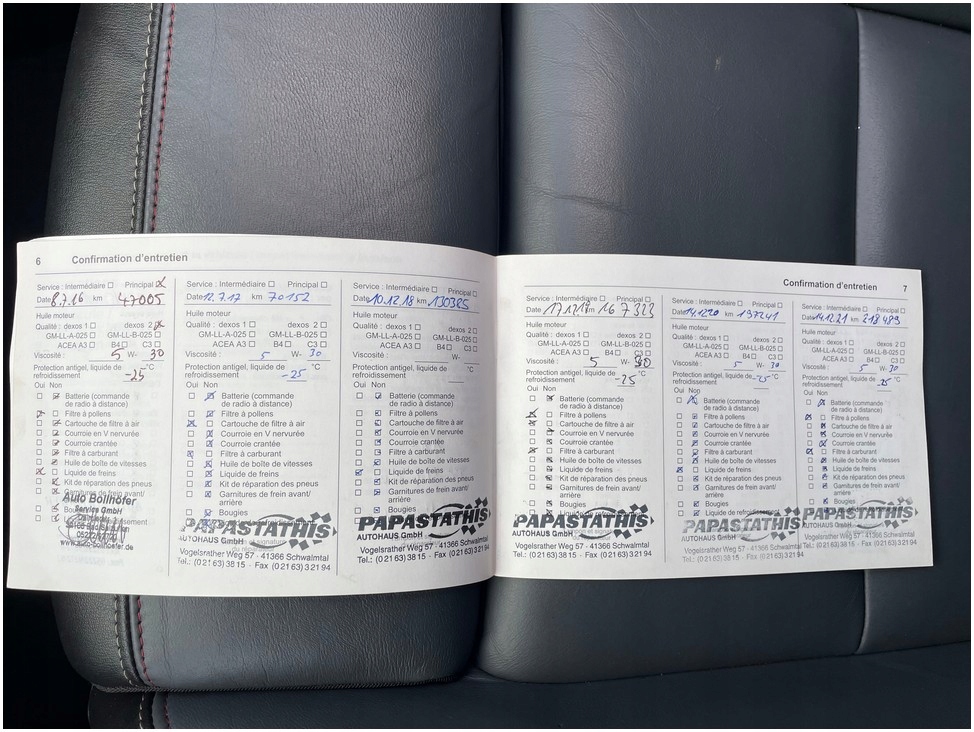 6 Confirmation d'entretien
Service : Intermédiaire Principal
Date 8.7.16 km 47005
Huile moteur
Qualité : dexos 1 dexos 2
GM-LL-A-025 GM-LL-B-025
ACEA A3 B4 C3
Viscosité : 5 W- 30
Protection antigel, liquide de refroidissement -25 °C
Oui Non
Batterie (commande
de radio à distance)
Filtre à pollens
Cartouche de filtre à air
Courroie en V nervurée
Courroie crantée
Filtre à carburant
Huile de boîte de vitesses
Liquide de freins
Kit de réparation des pneus
Garnitures de frein avant/
Auto Bollhöfer
Service GmbH
www.auto-bollhoefer.de
Service : Intermédiaire Principal
Date 12.7.17 km 70152
Huile moteur
Qualité : dexos 1 dexos 2
GM-LL-A-025 GM-LL-B-025
ACEA A3 B4 C3
Viscosité : 5 W- 30
Protection antigel, liquide de refroidissement -25 °C
Oui Non
Batterie (commande
de radio à distance)
Filtre à pollens
Cartouche de filtre à air
Courroie en V nervurée
Courroie crantée
Filtre à carburant
Huile de boîte de vitesses
Liquide de freins
Kit de réparation des pneus
Garnitures de frein avant/
arrière
Bougies
PAPASTATHIS
AUTOHAUS GmbH
Vogelsrather Weg 57 · 41366 Schwalmtal
Tel.: (0 21 63) 38 15 · Fax (0 21 63) 3 21 94
Service : Intermédiaire Principal
Date 10.12.18 km 130385
Huile moteur
Qualité : dexos 1 dexos 2
GM-LL-A-025 GM-LL-B-025
ACEA A3 B4 C3
Viscosité : W-
Protection antigel, liquide de refroidissement °C
Oui Non
Batterie (commande
de radio à distance)
Filtre à pollens
Cartouche de filtre à air
Courroie en V nervurée
Courroie crantée
Filtre à carburant
Huile de boîte de vitesses
Liquide de freins
Kit de réparation des pneus
Garnitures de frein avant/
arrière
Bougies
PAPASTATHIS
AUTOHAUS GmbH
Vogelsrather Weg 57 · 41366 Schwalmtal
Tel.: (0 21 63) 38 15 · Fax (0 21 63) 3 21 94
Confirmation d'entretien 7
Service : Intermédiaire Principal
Date 17.12.19 km 167323
Huile moteur
Qualité : dexos 1 dexos 2
GM-LL-A-025 GM-LL-B-025
ACEA A3 B4 C3
Viscosité : 5 W- 30
Protection antigel, liquide de refroidissement -25 °C
Oui Non
Batterie (commande
de radio à distance)
Filtre à pollens
Cartouche de filtre à air
Courroie en V nervurée
Courroie crantée
Filtre à carburant
Huile de boîte de vitesses
Liquide de freins
Kit de réparation des pneus
Garnitures de frein avant/
arrière
Bougies
PAPASTATHIS
AUTOHAUS GmbH
Vogelsrather Weg 57 · 41366 Schwalmtal
Tel.: (0 21 63) 38 15 · Fax (0 21 63) 3 21 94
Service : Intermédiaire Principal
Date km 197241
Huile moteur
Qualité : dexos 1 dexos 2
GM-LL-A-025 GM-LL-B-025
ACEA A3 B4 C3
Viscosité : 5 W- 30
Protection antigel, liquide de refroidissement -25 °C
Oui Non
Batterie (commande
de radio à distance)
Filtre à pollens
Cartouche de filtre à air
Courroie en V nervurée
Courroie crantée
Filtre à carburant
Huile de boîte de vitesses
Liquide de freins
Kit de réparation des pneus
Garnitures de frein avant/
arrière
Bougies
Liquide de refroidissement
PAPASTATHIS
AUTOHAUS GmbH
Vogelsrather Weg 57 · 41366 Schwalmtal
Tel.: (0 21 63) 38 15 · Fax (0 21 63) 3 21 94
Service : Intermédiaire Principal
Date km 218483
Huile moteur
Qualité : dexos 1 dexos 2
GM-LL-A-025 GM-LL-B-025
ACEA A3 B4 C3
Viscosité : 5 W- 30
Protection antigel, liquide de refroidissement -25 °C
Oui Non
Batterie (commande
de radio à distance)
Filtre à pollens
Cartouche de filtre à air
Courroie en V nervurée
Courroie crantée
Filtre à carburant
Huile de boîte de vitesses
Liquide de freins
Kit de réparation des pneus
Garnitures de frein avant/
arrière
Bougies
PAPASTATHIS
AUTOHAUS GmbH
Vogelsrather Weg 57 · 41366 Schwalmtal
Tel.: (0 21 63) 38 15 · Fax (0 21 63) 3 21 94